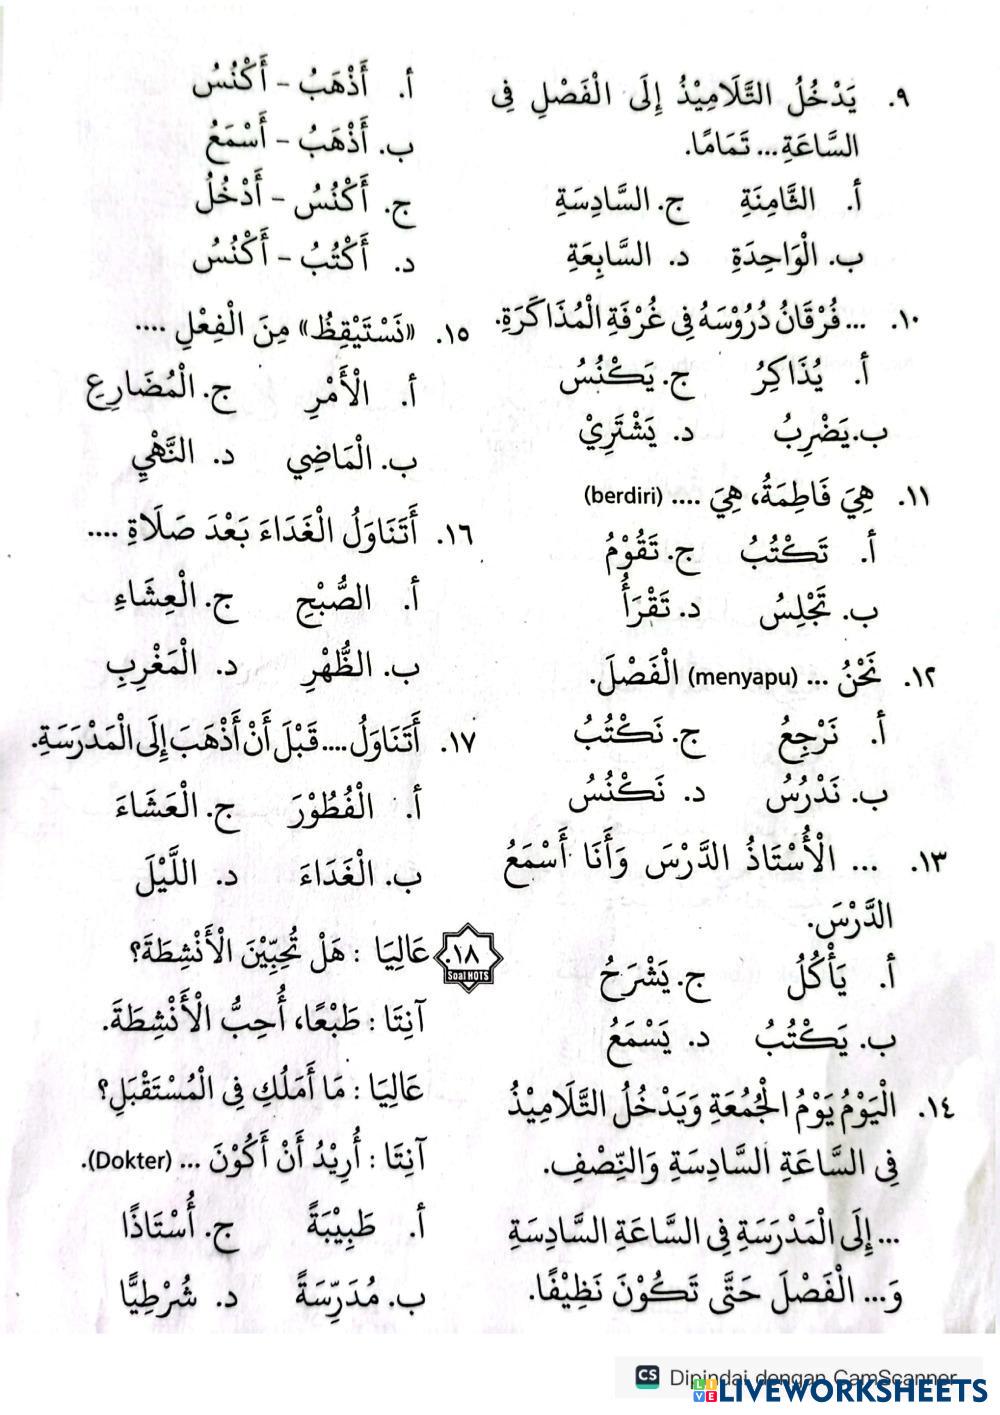 ٩. يَدْخُلُ التَّلَامِيْذُ إِلَى الْفَصْلِ فِى
السَّاعَةِ... تَمَامًا.
أ. الثَّامِنَةِ ج. السَّادِسَةِ
ب. الْوَاحِدَةِ د. السَّابِعَةِ
١٠. ... فُرْقَانُ دُرُوْسَهُ فِى غُرْفَةِ الْمُذَاكَرَةِ.
أ. يُذَاكِرُ ج. يَكْنُسُ
ب. يَضْرِبُ د. يَشْتَرِيْ
١١. هِيَ فَاطِمَةُ، هِيَ .... (berdiri)
أ. تَكْتُبُ ج. تَقُوْمُ
ب. تَجْلِسُ د. تَقْرَأُ
١٢. نَحْنُ ... (menyapu) الْفَصْلَ.
أ. نَرْجِعُ ج. نَكْتُبُ
ب. نَدْرُسُ د. نَكْنُسُ
١٣. ... الْأُسْتَاذُ الدَّرْسَ وَأَنَا أَسْمَعُ
الدَّرْسَ.
أ. يَأْكُلُ ج. يَشْرَحُ
ب. يَكْتُبُ د. يَسْمَعُ
١٤. الْيَوْمُ يَوْمُ الْجُمُعَةِ وَيَدْخُلُ التَّلَامِيْذُ
فِى السَّاعَةِ السَّادِسَةِ وَالنِّصْفِ.
... إِلَى الْمَدْرَسَةِ فِى السَّاعَةِ السَّادِسَةِ
وَ... الْفَصْلَ حَتَّى تَكُوْنَ نَظِيْفًا.
أ. أَذْهَبُ - أَكْنُسُ
ب. أَذْهَبُ - أَسْمَعُ
ج. أَكْنُسُ - أَدْخُلُ
د. أَكْتُبُ - أَكْنُسُ
١٥. «نَسْتَيْقِظُ» مِنَ الْفِعْلِ ....
أ. الْأَمْرِ ج. الْمُضَارِعِ
ب. الْمَاضِي د. النَّهْيِ
١٦. أَتَنَاوَلُ الْغَدَاءَ بَعْدَ صَلَاةِ ....
أ. الصُّبْحِ ج. الْعِشَاءِ
ب. الظُّهْرِ د. الْمَغْرِبِ
١٧. أَتَنَاوَلُ .... قَبْلَ أَنْ أَذْهَبَ إِلَى الْمَدْرَسَةِ.
أ. الْفُطُوْرَ ج. الْعَشَاءَ
ب. الْغَدَاءَ د. اللَّيْلَ
١٨. عَالِيَا : هَلْ تُحِبِّيْنَ الْأَنْشِطَةَ؟
Soal HOTS
آنِتَا : طَبْعًا، أُحِبُّ الْأَنْشِطَةَ.
عَالِيَا : مَا أَمَلُكِ فِى الْمُسْتَقْبَلِ؟
آنِتَا : أُرِيْدُ أَنْ أَكُوْنَ ... (Dokter).
أ. طَبِيْبَةً ج. أُسْتَاذًا
ب. مُدَرِّسَةً د. شُرْطِيًّا
CS Dipindai dengan CamScanner
LIVE LIVEWORKSHEETS